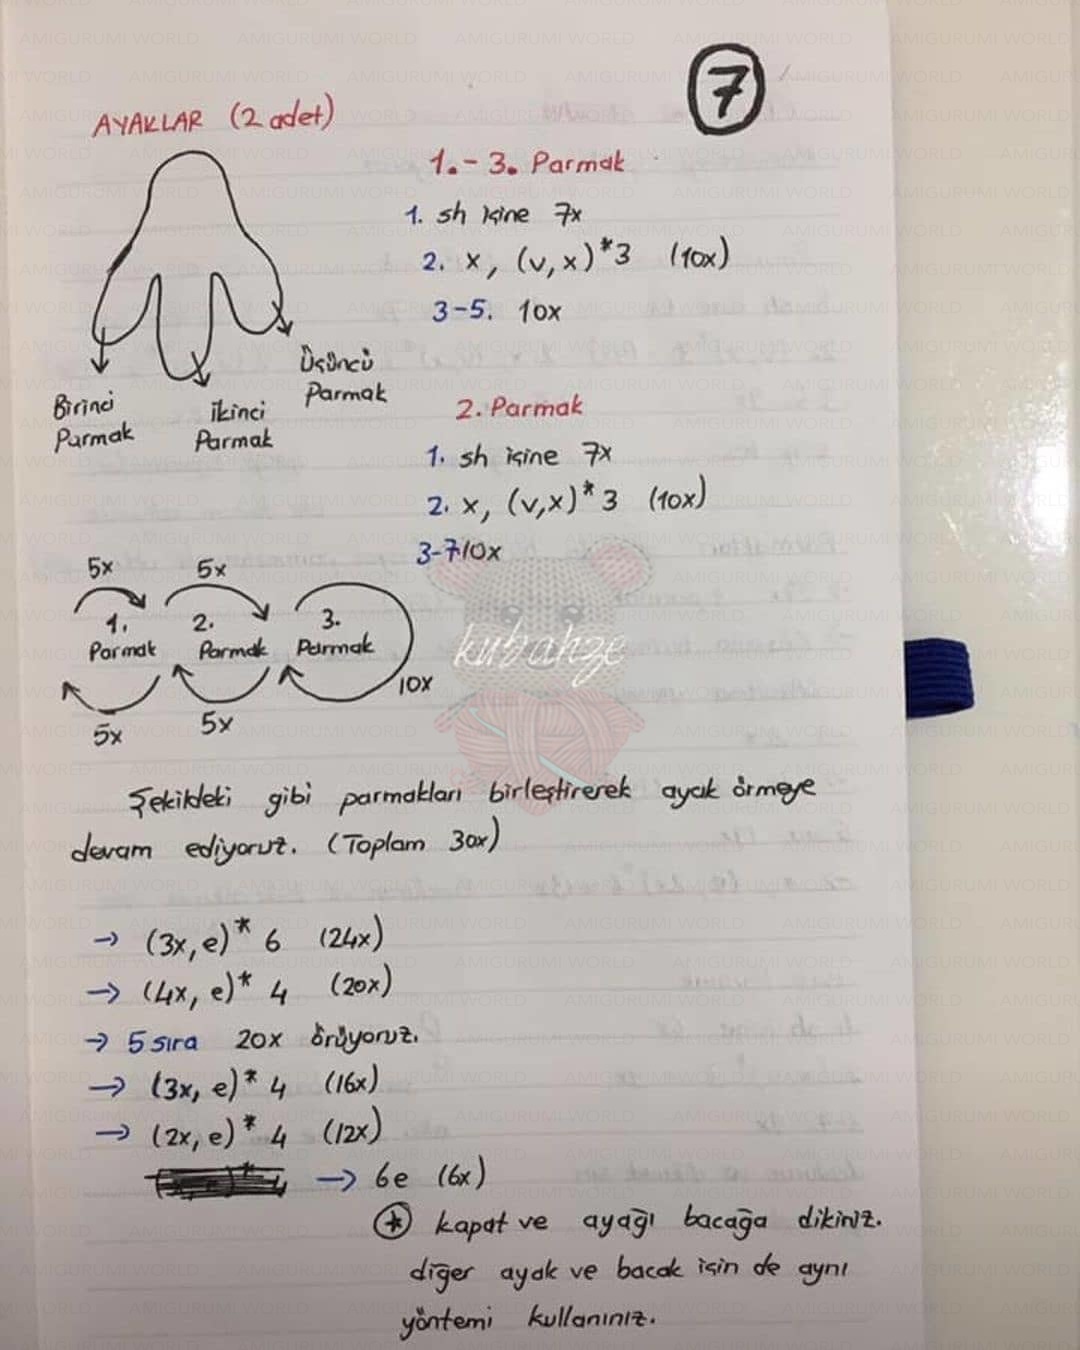 7
AYAKLAR (2 adet)
1.-3. Parmak
1. sh içine 7x
2. x, (v,x)*3 (10x)
3-5. 10x
Birinci
Parmak
ikinci
Parmak
Üçüncü
Parmak
2. Parmak
1. sh içine 7x
2. x, (v,x)*3 (10x)
3-7 10x
5x 5x
1.
Parmak
2.
Parmak
3.
Parmak
10x
5x 5x
kubahze
Şekildeki gibi parmakları birleştirerek ayak örmeye
devam ediyoruz. (Toplam 30x)
→ (3x, e)* 6 (24x)
→ (4x, e)* 4 (20x)
→ 5 sıra 20x örüyoruz.
→ (3x, e)* 4 (16x)
→ (2x, e)* 4 (12x)
→ 6e (6x)
* kapat ve ayağı bacağa dikiniz.
diğer ayak ve bacak için de aynı
yöntemi kullanınız.
AMIGURUMI WORLD